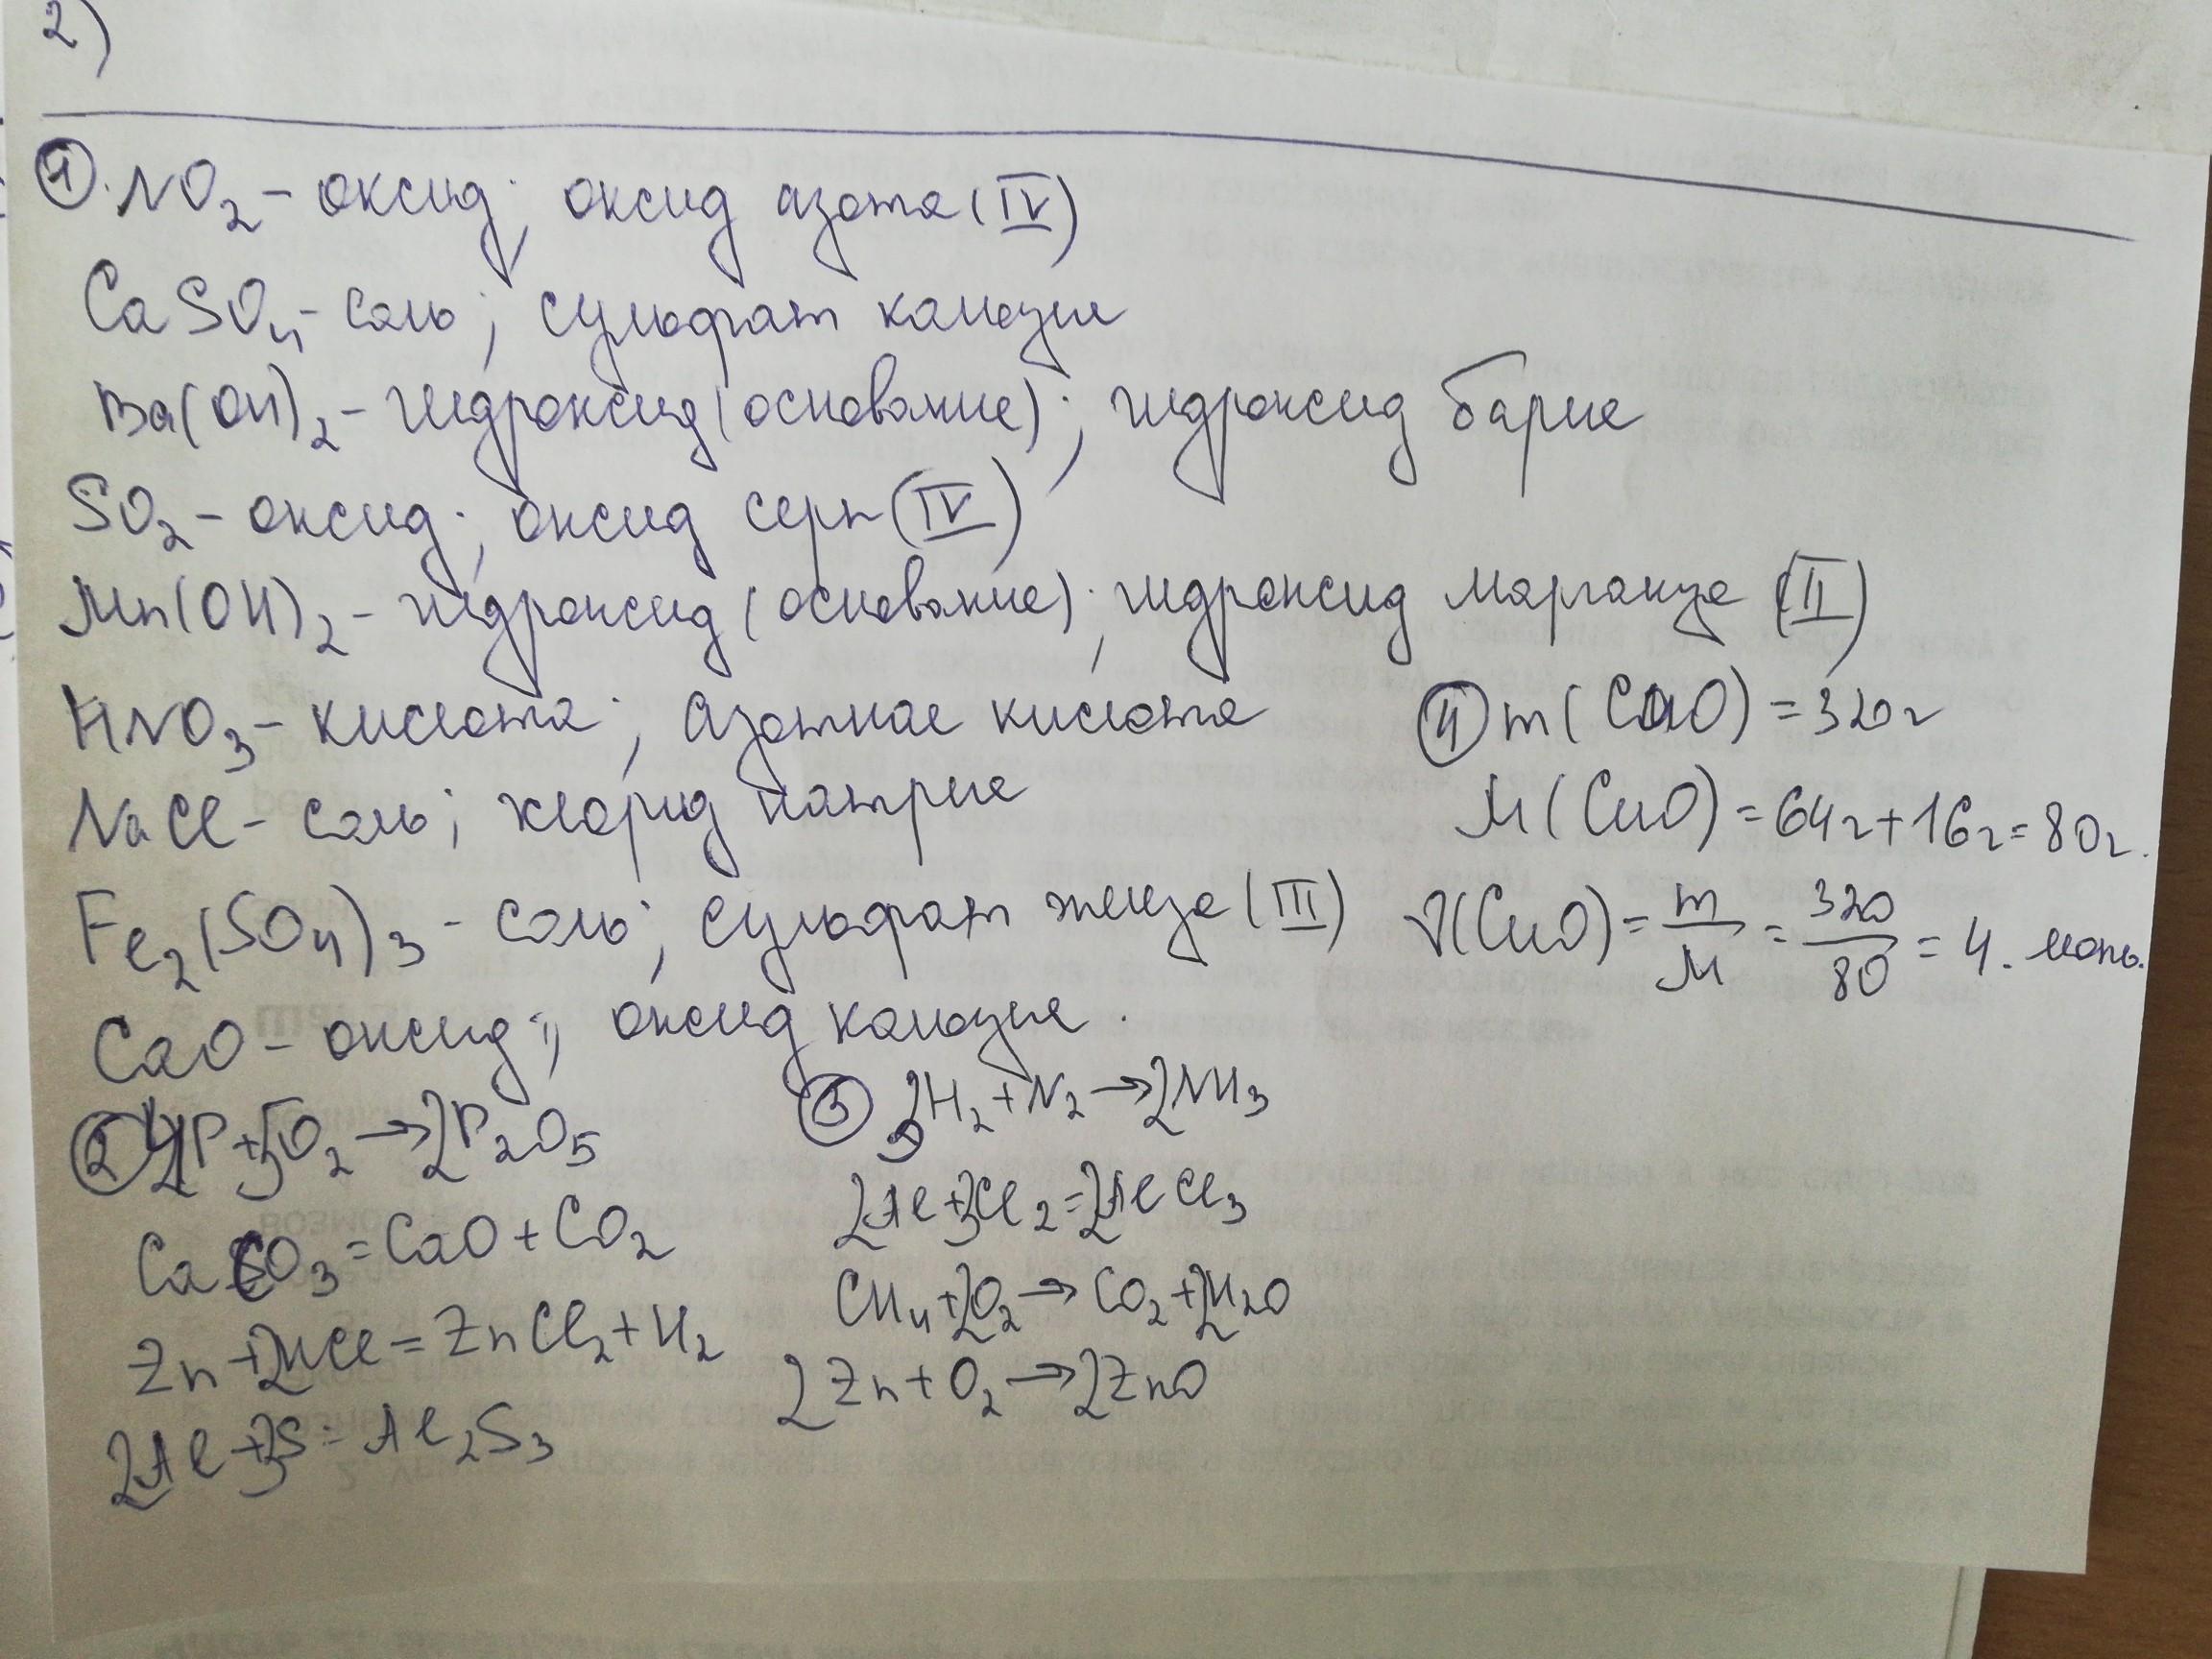 2)
① NO₂ - оксид; оксид азота (IV)
CaSO₄ - соль; сульфат кальция
Ba(OH)₂ - гидроксид (основание); гидроксид бария
SO₂ - оксид; оксид серы (IV)
Mn(OH)₂ - гидроксид (основание); гидроксид марганца (II)
HNO₃ - кислота; азотная кислота
NaCl - соль; хлорид натрия
Fe₂(SO₄)₃ - соль; сульфат железа (III)
CaO - оксид; оксид кальция.
② 4P + 5O₂ → 2P₂O₅
CaCO₃ = CaO + CO₂
Zn + 2HCl = ZnCl₂ + H₂
2Al + 3S = Al₂S₃
③ 3H₂ + N₂ → 2NH₃
2Al + 3Cl₂ = 2AlCl₃
CH₄ + 2O₂ → CO₂ + 2H₂O
2Zn + O₂ → 2ZnO
④ m(CuO) = 320г
M(CuO) = 64г + 16г = 80г.
ν(CuO) = m/M = 320/80 = 4. моль.